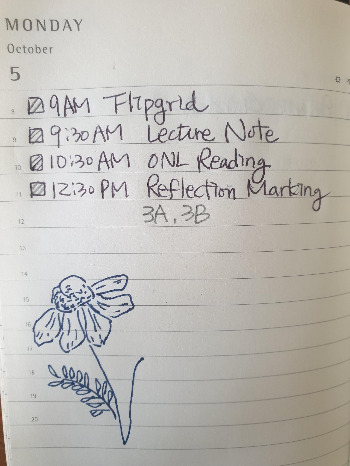 MONDAY
October
5
9AM Flipgrid
9:30AM Lecture Note
10:30AM ONL Reading
12:30PM Reflection Marking
3A, 3B
8
9
10
11
12
14
15
16
17
18
19
20